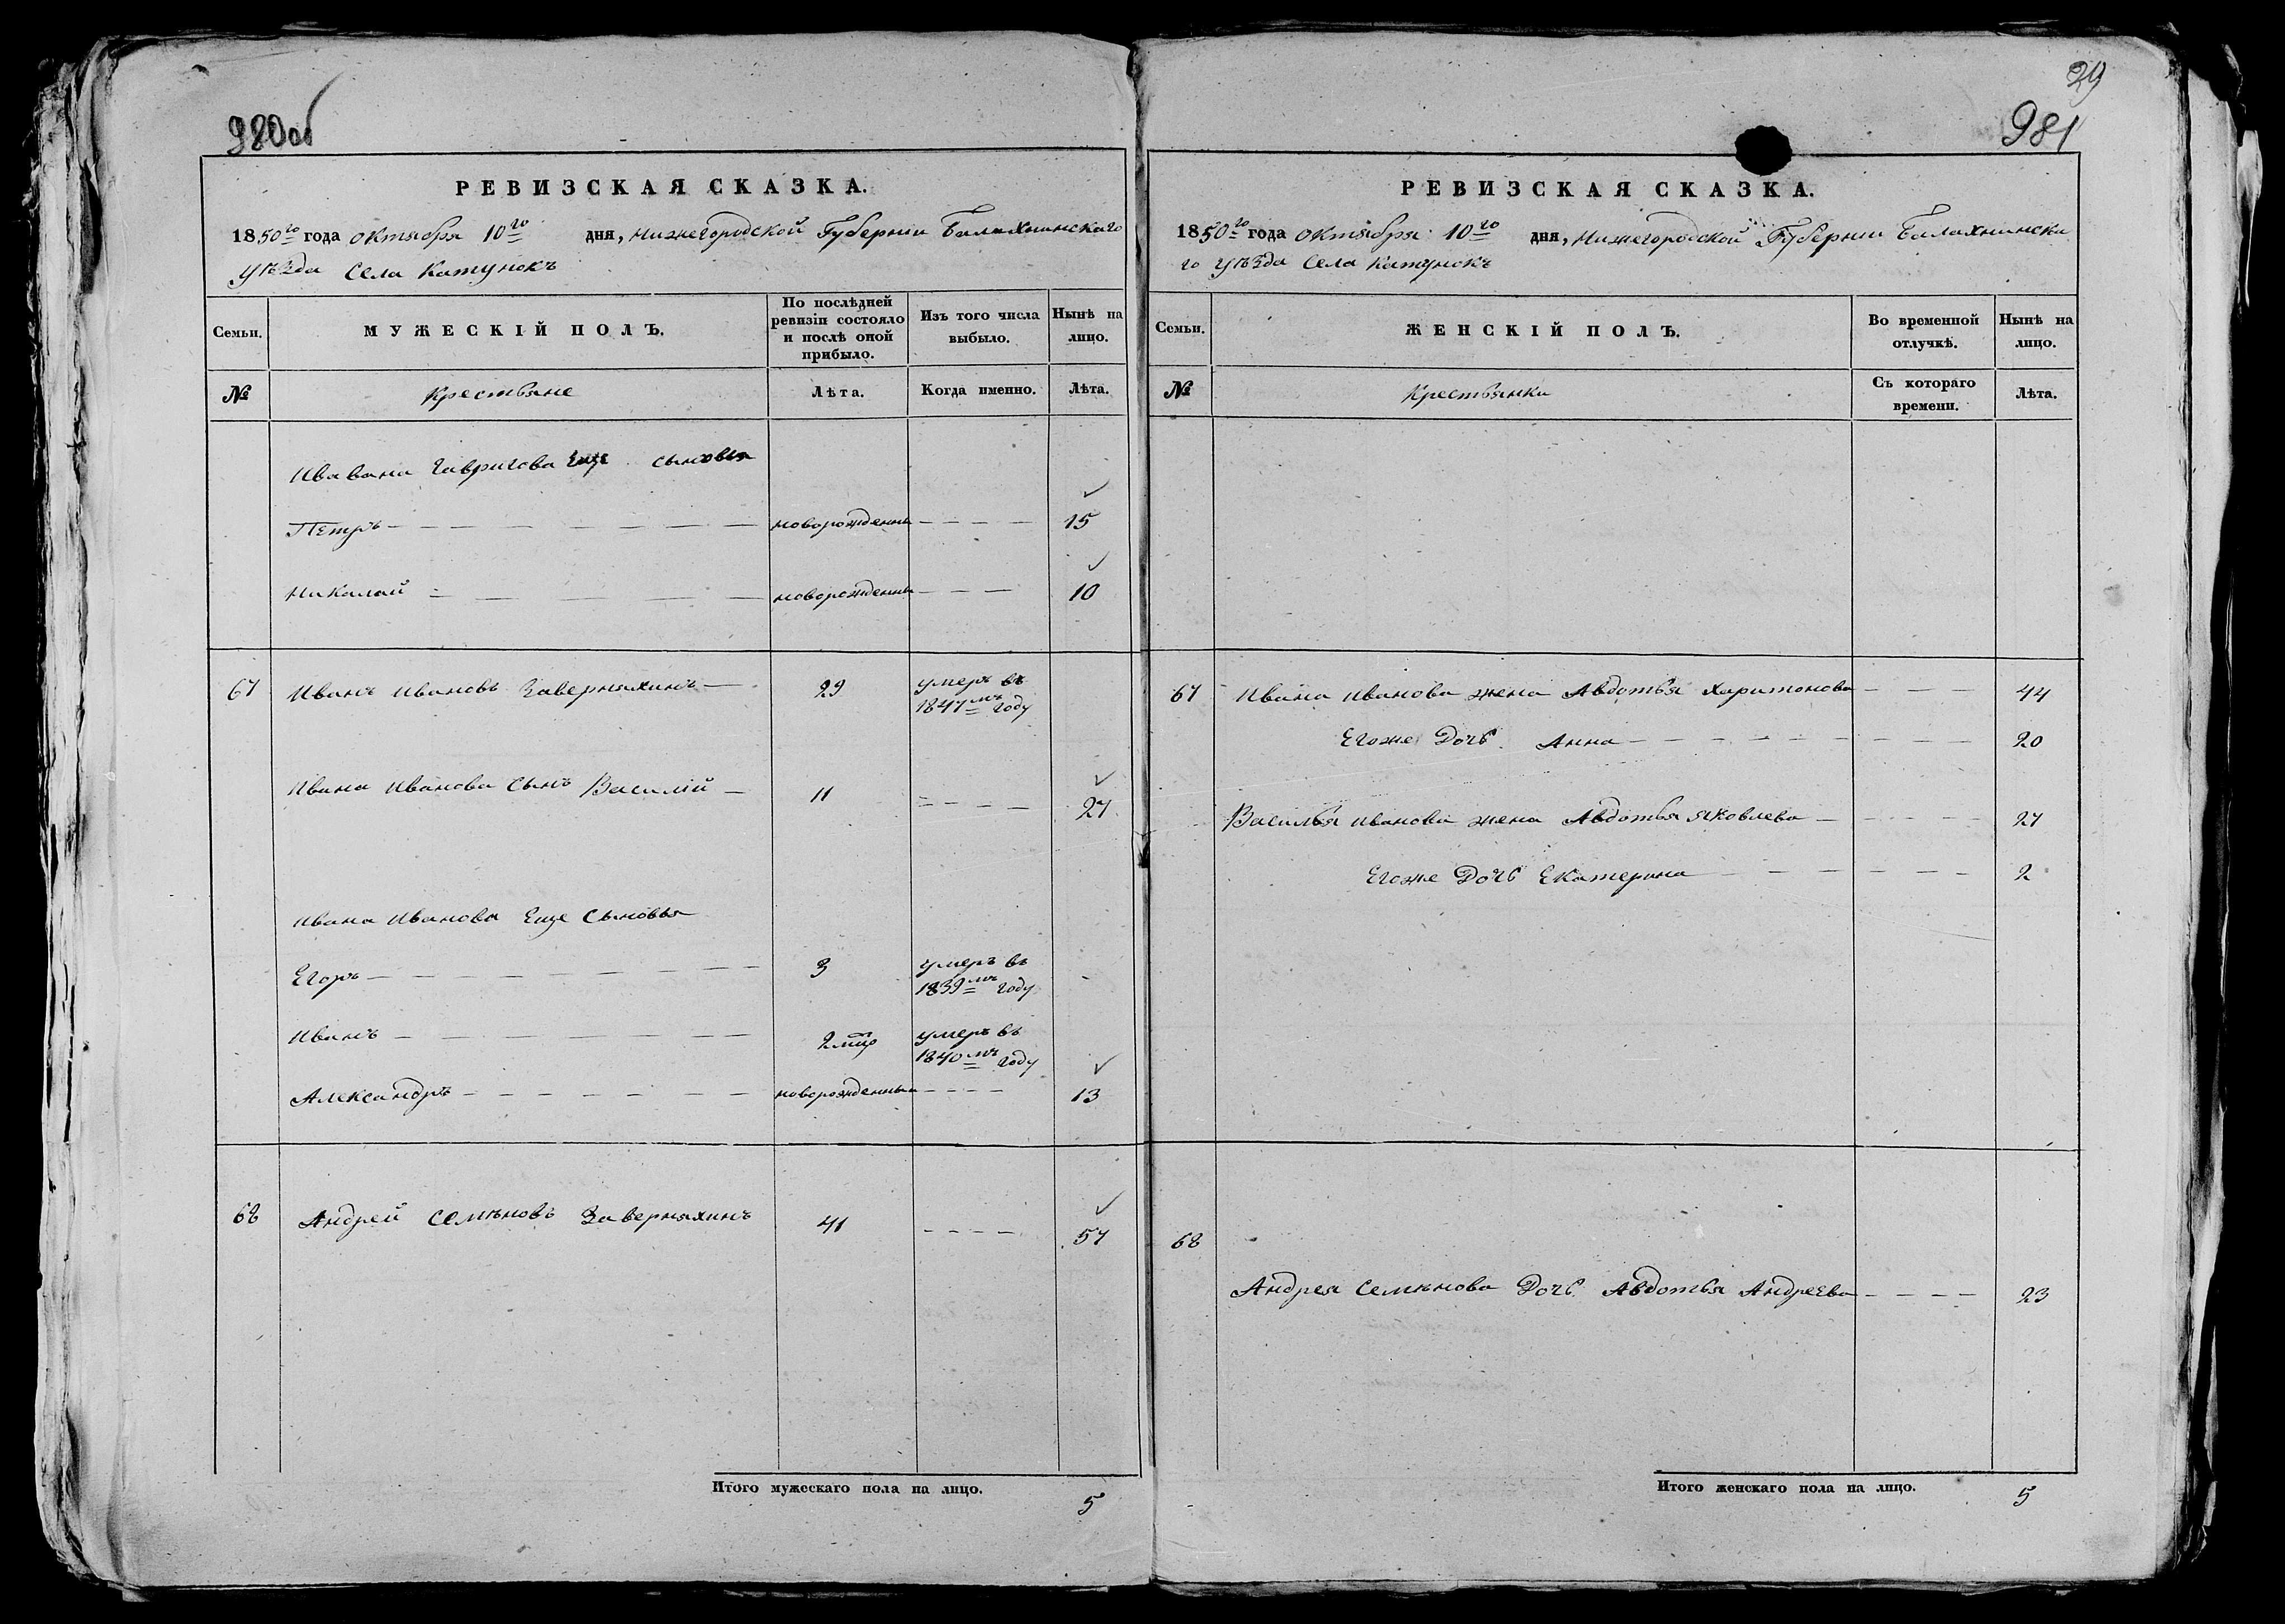 980об
РЕВИЗСКАЯ СКАЗКА.
1850го года октября 10го дня, Нижегородской Губернии Балахнинскаго
уѣзда села Катунокъ
Семьи. МУЖЕСКІЙ ПОЛЪ. По послѣдней ревизіи состояло и послѣ оной прибыло. Изъ того числа выбыло. Нынѣ на лицо.
№ Крестьяне Лѣта. Когда именно. Лѣта.
Ивавана Гаврилова Еще сыновья
Петръ новорожденны 15
Николай новорожденны 10
67 Иванъ Ивановъ Заверняхинъ 29 умеръ въ 1847мъ году
Ивана Иванова сынъ Василій 11 27
Ивана Иванова Еще сыновья
Егоръ 3 умеръ въ 1839мъ году
Иванъ 2 мцр умеръ въ 1840мъ году
Александръ новорожденны 13
68 Андрей Семѣновъ Заверняхинъ 41 57
Итого мужескаго пола на лицо. 5
29
981
РЕВИЗСКАЯ СКАЗКА.
1850го года октября 10го дня, Нижегородской Губернии Балахнинска
го уѣзда села Катунокъ
Семьи. ЖЕНСКІЙ ПОЛЪ. Во временной отлучкѣ. Нынѣ на лицо.
№ Крестьянки Съ котораго времени. Лѣта.
67 Ивана Иванова жена Авдотья Харитонова 44
Егоже Дочь Анна 20
Василья Иванова жена Авдотья Яковлева 27
Егоже Дочь Екатерина 2
68
Андрея Семѣнова Дочь Авдотья Андреева 23
Итого женскаго пола на лицо. 5